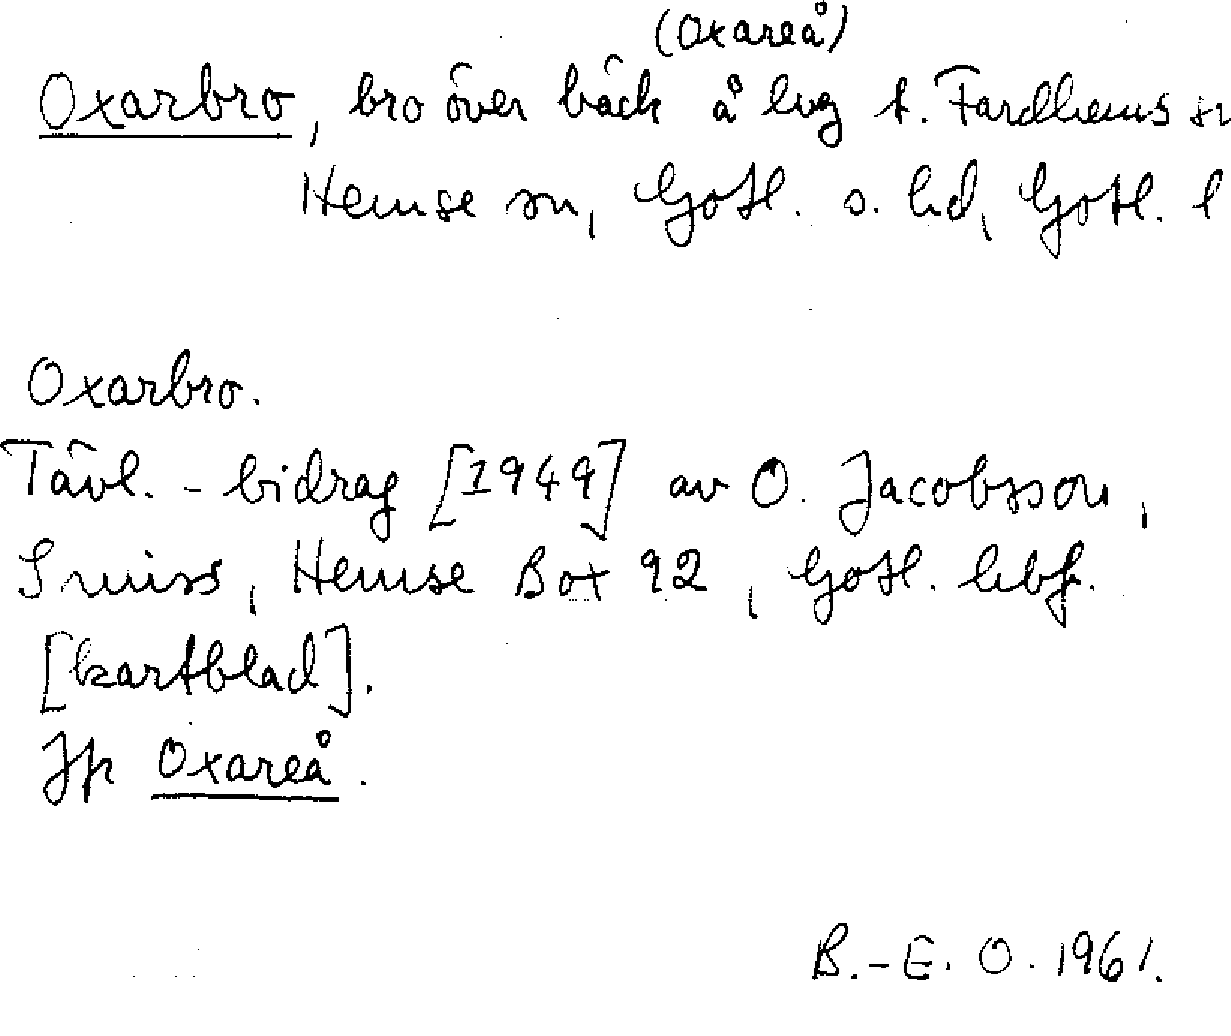 (Oxareå)
Oxarbro, bro över bäck å lvg t. Fardhems sn
Hemse sn, Gotl. s. hd, Gotl. l
Oxarbro.
Tävl. - bidrag [1949] av O. Jacobsson,
Smiss, Hemse Box 92, Gotl. hbf.
[kartblad].
Jfr Oxareå.
B.-E. O. 1961.